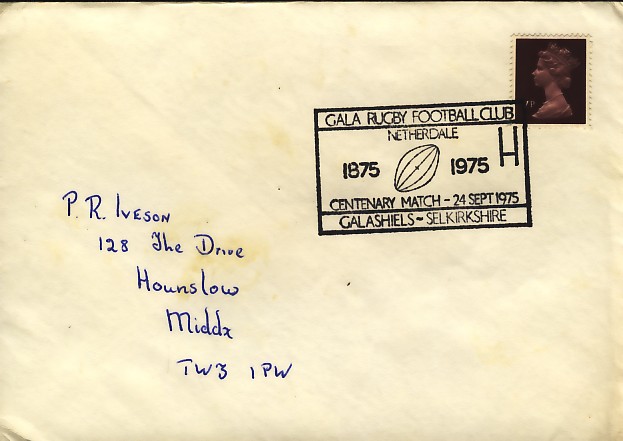 GALA RUGBY FOOTBALL CLUB
NETHERDALE
1875 1975
CENTENARY MATCH - 24 SEPT 1975
GALASHIELS - SELKIRKSHIRE
P. R. IVESON
128 The Drive
Hounslow
Middx
TW3 1PW